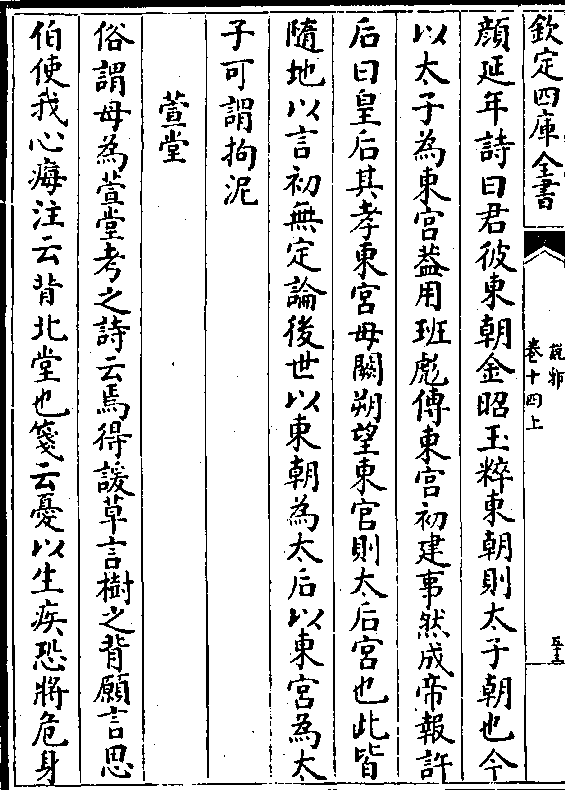 欽定四庫全書
說郛
卷十四上
五十三
顔延年詩曰君彼東朝金昭玉粹東朝則太子朝也今
以太子為東宮葢用班彪傳東宮初建事然成帝報許
后曰皇后其孝東宮毋闕朔望東宮則太后宮也此皆
隨地以言初無定論後世以東朝為太后以東宮為太
子可謂拘泥
萱堂
俗謂母為萱堂考之詩云焉得諼草言樹之背願言思
伯使我心痗注云背北堂也箋云憂以生疾恐將危身